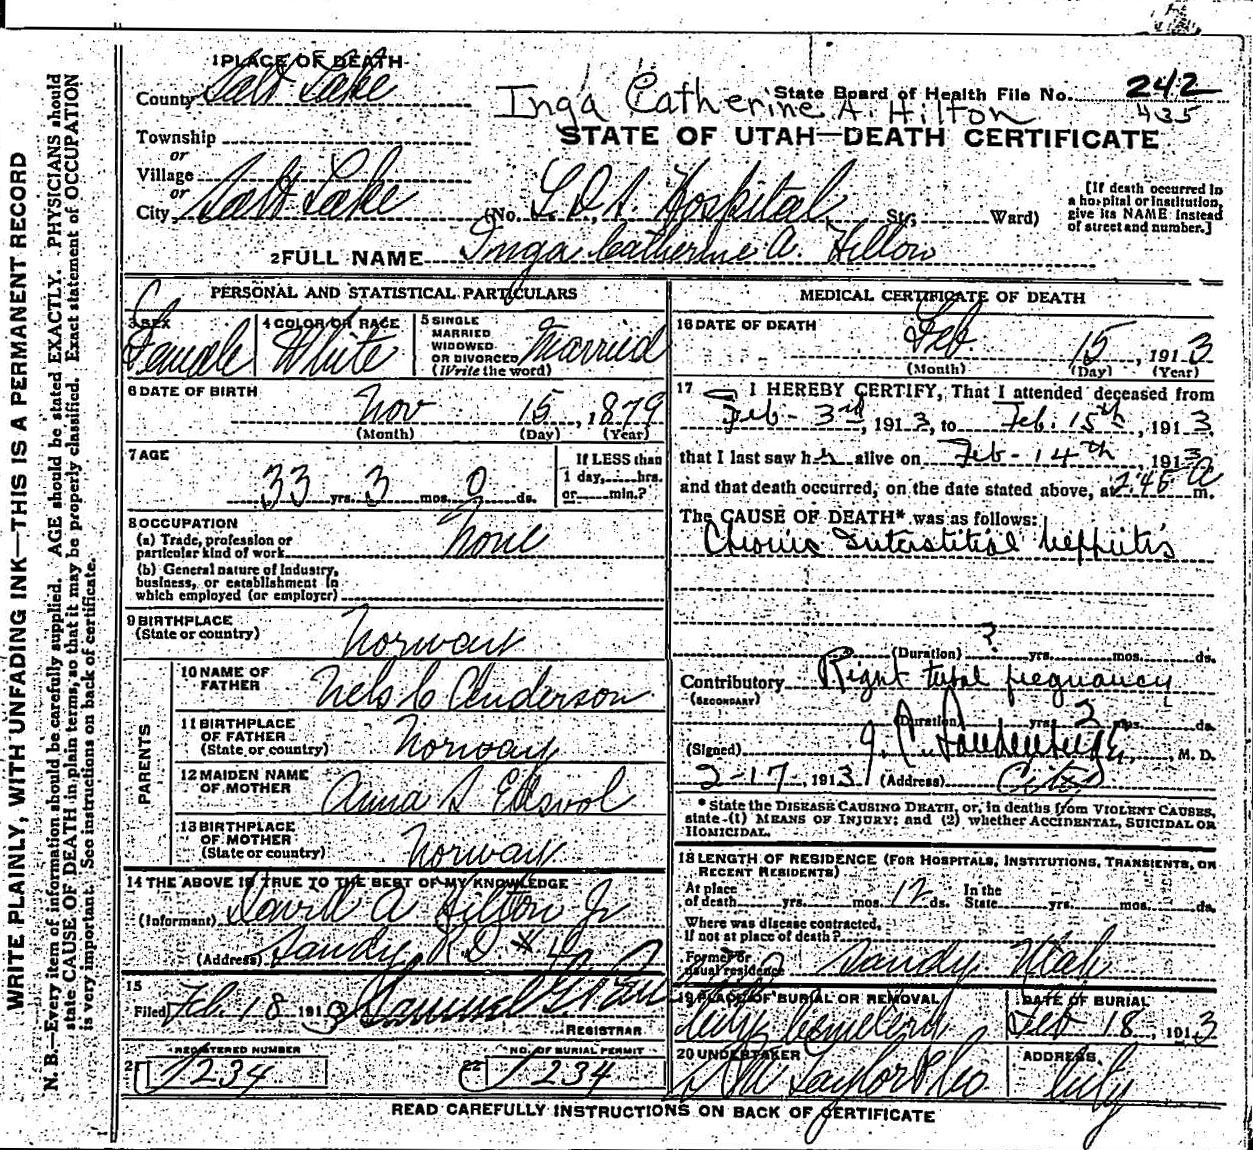 1 PLACE OF DEATH
County Salt Lake
State Board of Health File No. 242
435
Inga Catherine A. Hilton
Township
or
Village
or
City Salt Lake
STATE OF UTAH—DEATH CERTIFICATE
(No. L.D.S. Hospital St; Ward)
[If death occurred in a hospital or institution, give its NAME instead of street and number.]
2 FULL NAME Inga Catherine A. Hilton
PERSONAL AND STATISTICAL PARTICULARS
3 SEX Female
4 COLOR OR RACE White
5 SINGLE MARRIED WIDOWED OR DIVORCED (Write the word) Married
6 DATE OF BIRTH
Nov 15, 1879
(Month) (Day) (Year)
7 AGE
33 yrs. 3 mos. 0 ds.
If LESS than 1 day, hrs. or min.?
8 OCCUPATION
(a) Trade, profession or particular kind of work None
(b) General nature of industry, business, or establishment in which employed (or employer)
9 BIRTHPLACE
(State or country) Norway
PARENTS
10 NAME OF FATHER Nels C Anderson
11 BIRTHPLACE OF FATHER (State or country) Norway
12 MAIDEN NAME OF MOTHER Anna S
13 BIRTHPLACE OF MOTHER (State or country) Norway
14 THE ABOVE IS TRUE TO THE BEST OF MY KNOWLEDGE
(Informant) David A Hilton Jr
(Address) Sandy R D # 4
15
Filed Feb. 18 1913 Samuel G.
REGISTRAR
REGISTERED NUMBER
21 234
NO. OF BURIAL PERMIT
22 234
MEDICAL CERTIFICATE OF DEATH
16 DATE OF DEATH
Feb 15, 1913
(Month) (Day) (Year)
17 I HEREBY CERTIFY, That I attended deceased from
Feb - 3rd, 1913, to Feb. 15th, 1913,
that I last saw her alive on Feb - 14th, 1913
and that death occurred, on the date stated above, at 2:45 A m.
The CAUSE OF DEATH* was as follows:
Chronic Interstitial Nephritis
(Duration) ? yrs. mos. ds.
Contributory Right tubal pregnancy
(SECONDARY)
(Duration) yrs. 2 mos. ds.
(Signed) J. C. M. D.
2-17-1913 (Address) City
* State the DISEASE CAUSING DEATH, or, in deaths from VIOLENT CAUSES, state (1) MEANS OF INJURY; and (2) whether ACCIDENTAL, SUICIDAL OR HOMICIDAL.
18 LENGTH OF RESIDENCE (FOR HOSPITALS, INSTITUTIONS, TRANSIENTS, OR RECENT RESIDENTS)
At place of death yrs. mos. 12 ds. In the State yrs. mos. ds.
Where was disease contracted, If not at place of death?
Former or usual residence Sandy Utah
19 PLACE OF BURIAL OR REMOVAL
City Cemetery
DATE OF BURIAL
Feb 18, 1913
20 UNDERTAKER
S M Taylor & Co
ADDRESS
City
READ CAREFULLY INSTRUCTIONS ON BACK OF CERTIFICATE
WRITE PLAINLY, WITH UNFADING INK—THIS IS A PERMANENT RECORD
N. B.—Every item of information should be carefully supplied. AGE should be stated EXACTLY. PHYSICIANS should
state CAUSE OF DEATH in plain terms, so that it may be properly classified. Exact statement of OCCUPATION
is very important. See instructions on back of certificate.